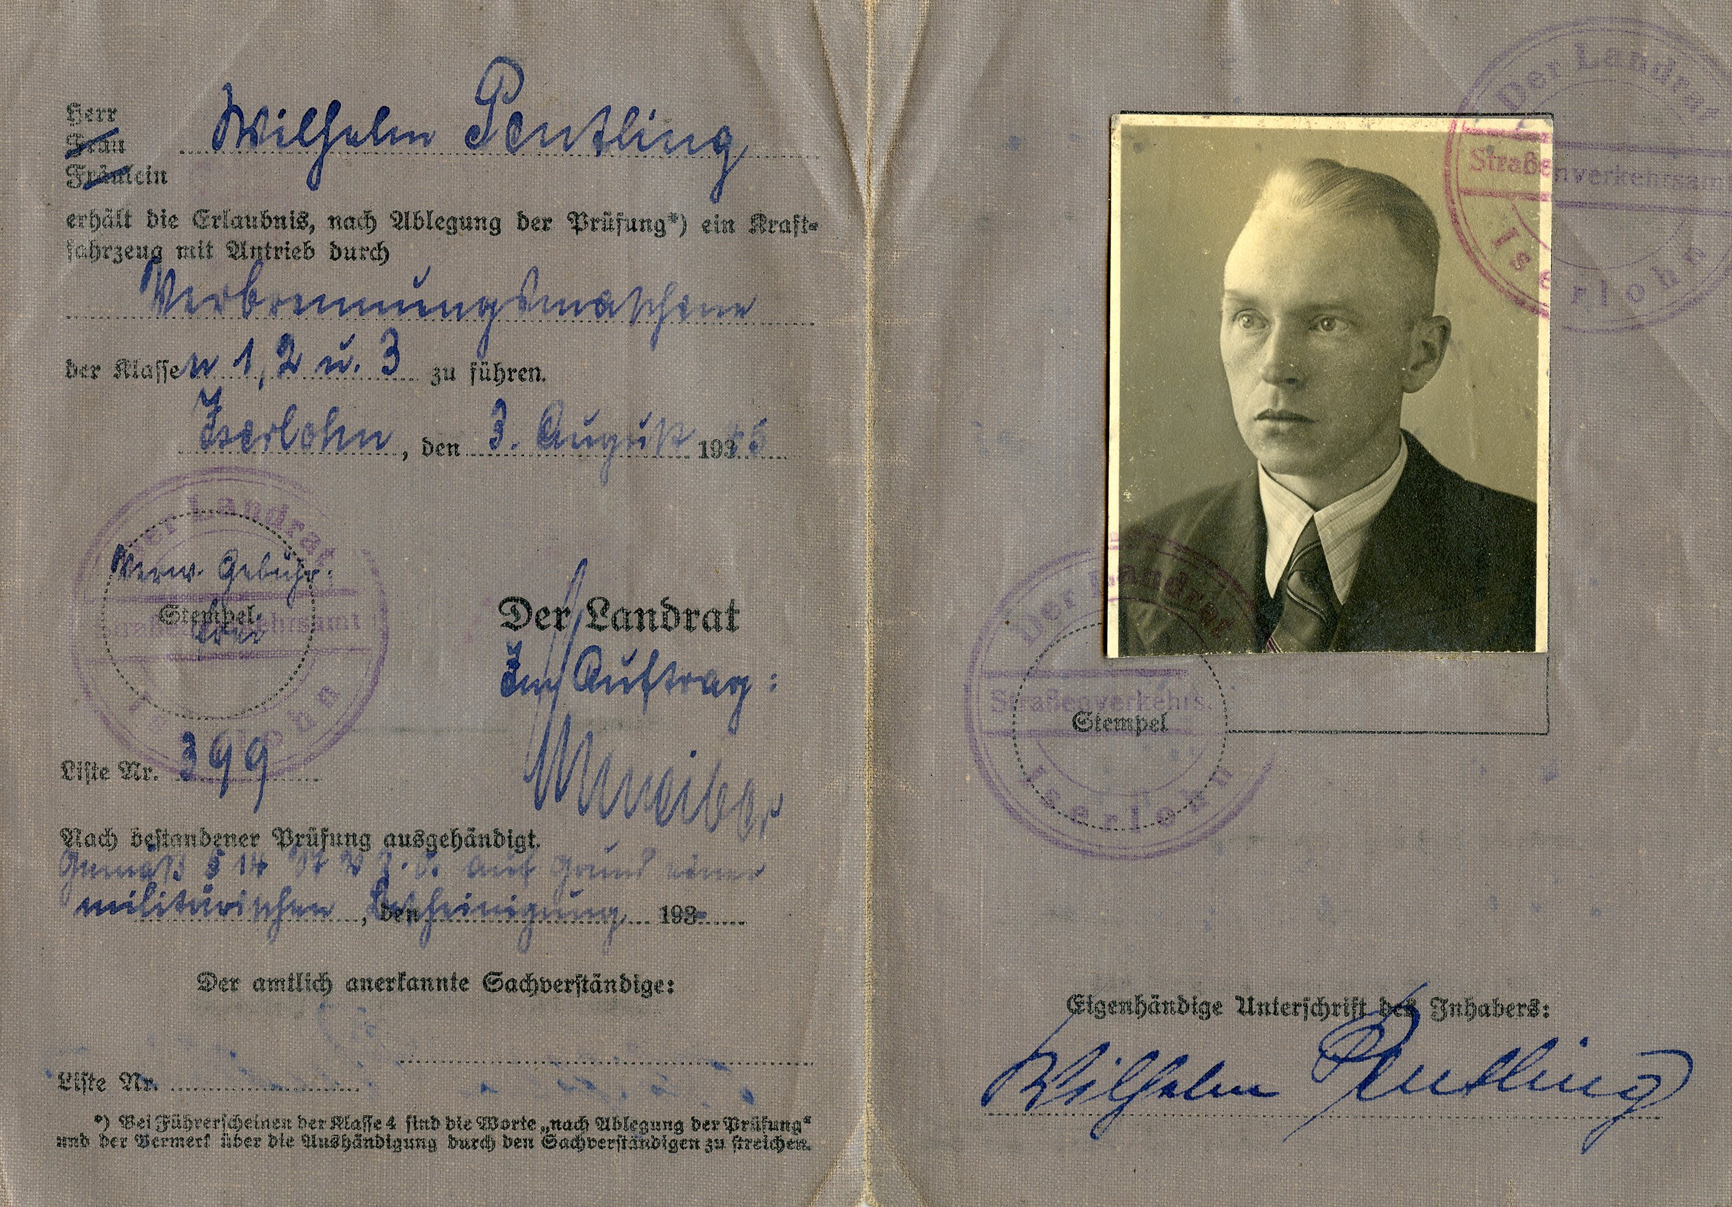 Herr
Frau
Fräulein
Wilhelm Pentling
erhält die Erlaubnis, nach Ablegung der Prüfung*) ein Kraft-
fahrzeug mit Antrieb durch
Verbrennungsmaschine
der Klassen 1, 2 u. 3 zu führen.
Iserlohn, den 3. August 1945
Der Landrat
Straßenverkehrsamt
Iserlohn
Verw. Gebühr.
Stempel
frei
Der Landrat
Im Auftrag:
Liste Nr. 399
Nach bestandener Prüfung ausgehändigt.
Gemäß § 14 St V Z. O. auf Grund einer
militärischen Bescheinigung, den 193
Der amtlich anerkannte Sachverständige:
Liste Nr.
*) Bei Führerscheinen der Klasse 4 sind die Worte „nach Ablegung der Prüfung“
und der Vermerk über die Aushändigung durch den Sachverständigen zu streichen.
Der Landrat
Straßenverkehrsamt
Iserlohn
Der Landrat
Straßenverkehrs.
Stempel
Iserlohn
Eigenhändige Unterschrift des Inhabers:
Wilhelm Pentling